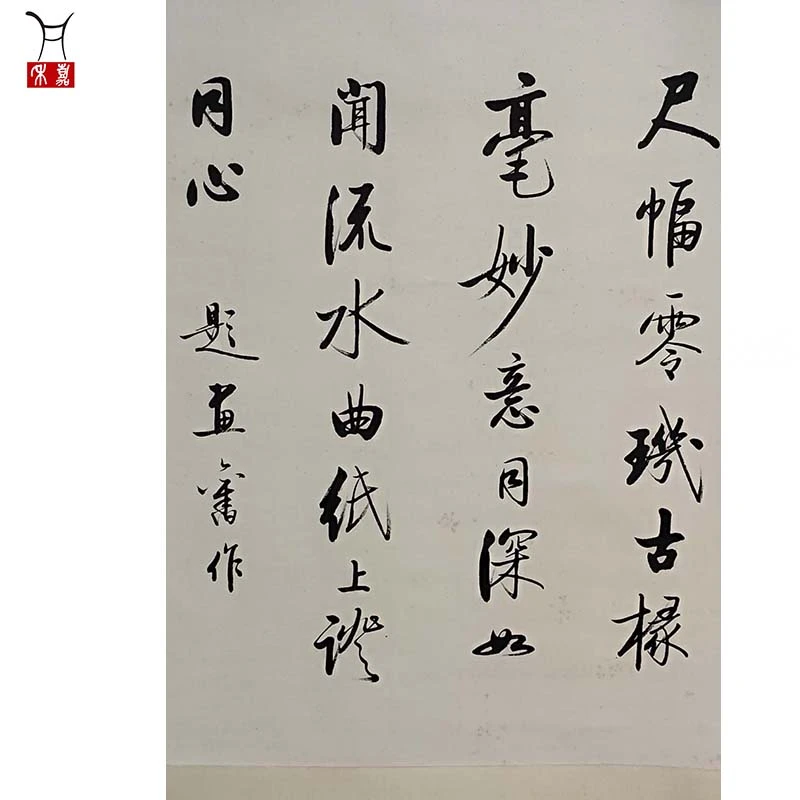 尺幅零璣古椽
毫妙意同深如
聞流水曲紙上證
同心 題畫舊作